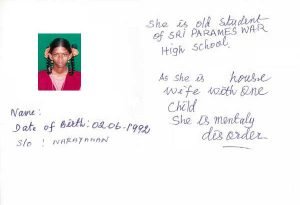 She is old student
of SRI PARAMESWAR
High school.
As she is house
wife with one
child
She is mentaly
disorder
Name:
Date of Birth: 02-06-1992
S/o : NARAYANAN